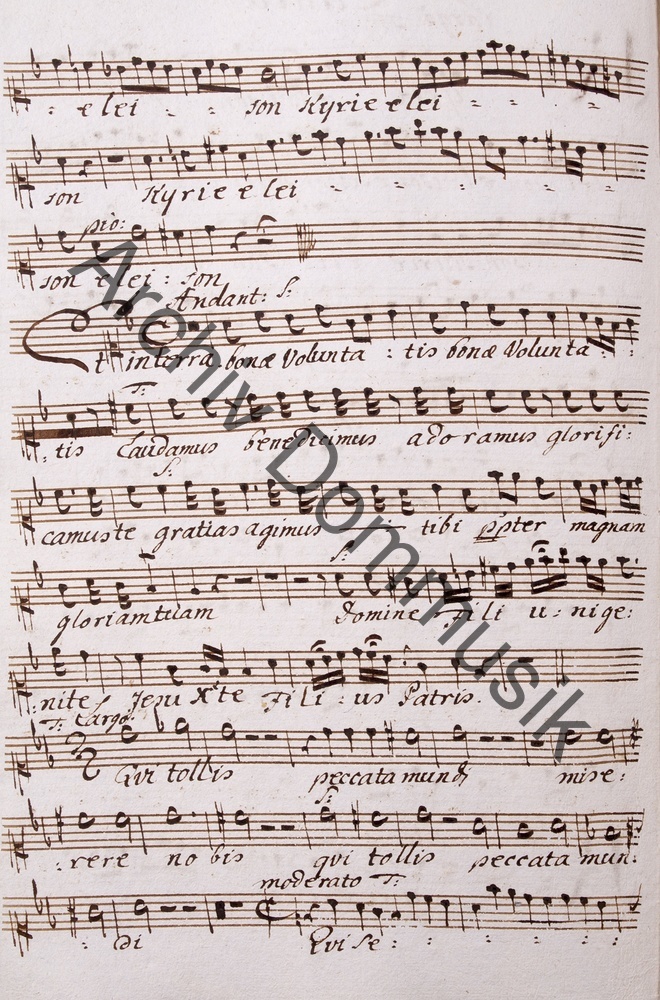 : e lei - - son Kyrie e lei - - - -
son Kyrie e lei - - - -
pio:
son elei : son
Andant: S:
Et in terra bonæ Volunta : tis bonæ Volunta : :
T:
: tis Laudamus benedicimus adoramus glorifi:
S:
camus te gratias agimus tibi ppter magnam
gloriam tuam Domine Fili u : nige:
: nite Jesu Xte Fili : us Patris.
T: Largo
Qvi tollis peccata mundj mise:
S:
: rere nobis qvi tollis peccata mun:
moderato T:
: di Qvi se : : : : : :
Archiv Dommusik